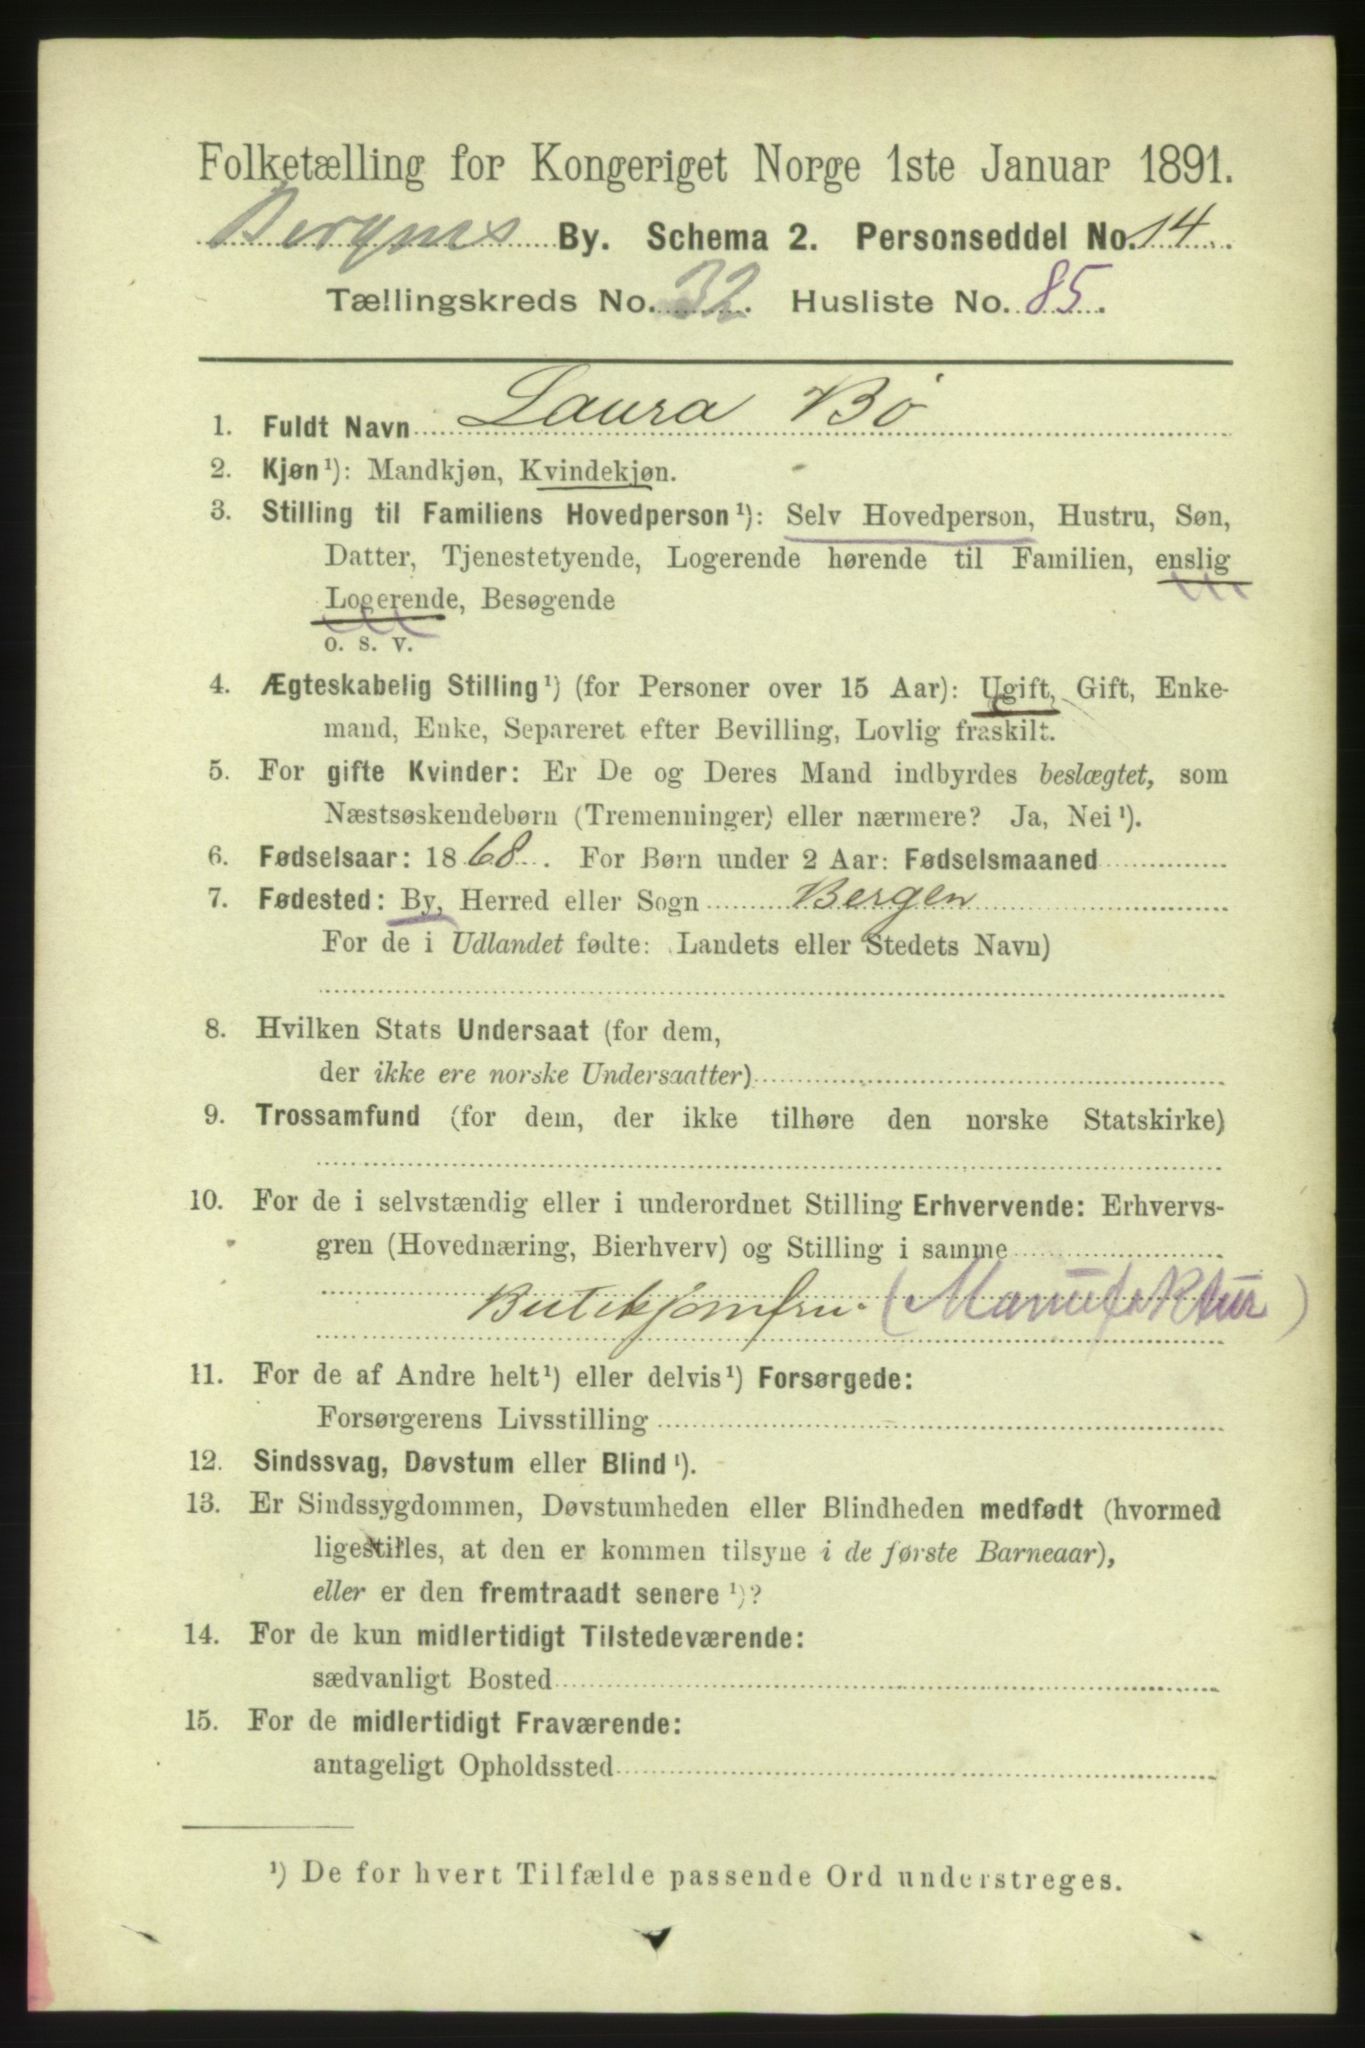 Folketælling for Kongeriget Norge 1ste Januar 1891.
Bergens By. Schema 2. Personseddel No. 14.
Tællingskreds No. 32. Husliste No. 85.
1. Fuldt Navn Laura Bø
2. Kjøn¹): Mandkjøn, Kvindekjøn.
3. Stilling til Familiens Hovedperson¹): Selv Hovedperson, Hustru, Søn,
Datter, Tjenestetyende, Logerende hørende til Familien, enslig
Logerende, Besøgende
o. s. v.
4. Ægteskabelig Stilling¹) (for Personer over 15 Aar): Ugift, Gift, Enke-
mand, Enke, Separeret efter Bevilling, Lovlig fraskilt.
5. For gifte Kvinder: Er De og Deres Mand indbyrdes beslægtet, som
Næstsøskendebørn (Tremenninger) eller nærmere? Ja, Nei¹).
6. Fødselsaar: 1868. For Børn under 2 Aar: Fødselsmaaned
7. Fødested: By, Herred eller Sogn Bergen
For de i Udlandet fødte: Landets eller Stedets Navn)
8. Hvilken Stats Undersaat (for dem,
der ikke ere norske Undersaatter)
9. Trossamfund (for dem, der ikke tilhøre den norske Statskirke)
10. For de i selvstændig eller i underordnet Stilling Erhvervende: Erhvervs-
gren (Hovednæring, Bierhverv) og Stilling i samme
Butikjomfru. (Manufaktur)
11. For de af Andre helt¹) eller delvis¹) Forsørgede:
Forsørgerens Livsstilling
12. Sindssvag, Døvstum eller Blind¹).
13. Er Sindssygdommen, Døvstumheden eller Blindheden medfødt (hvormed
ligestilles, at den er kommen tilsyne i de første Barneaar),
eller er den fremtraadt senere¹)?
14. For de kun midlertidigt Tilstedeværende:
sædvanligt Bosted
15. For de midlertidigt Fraværende:
antageligt Opholdssted
¹) De for hvert Tilfælde passende Ord understreges.